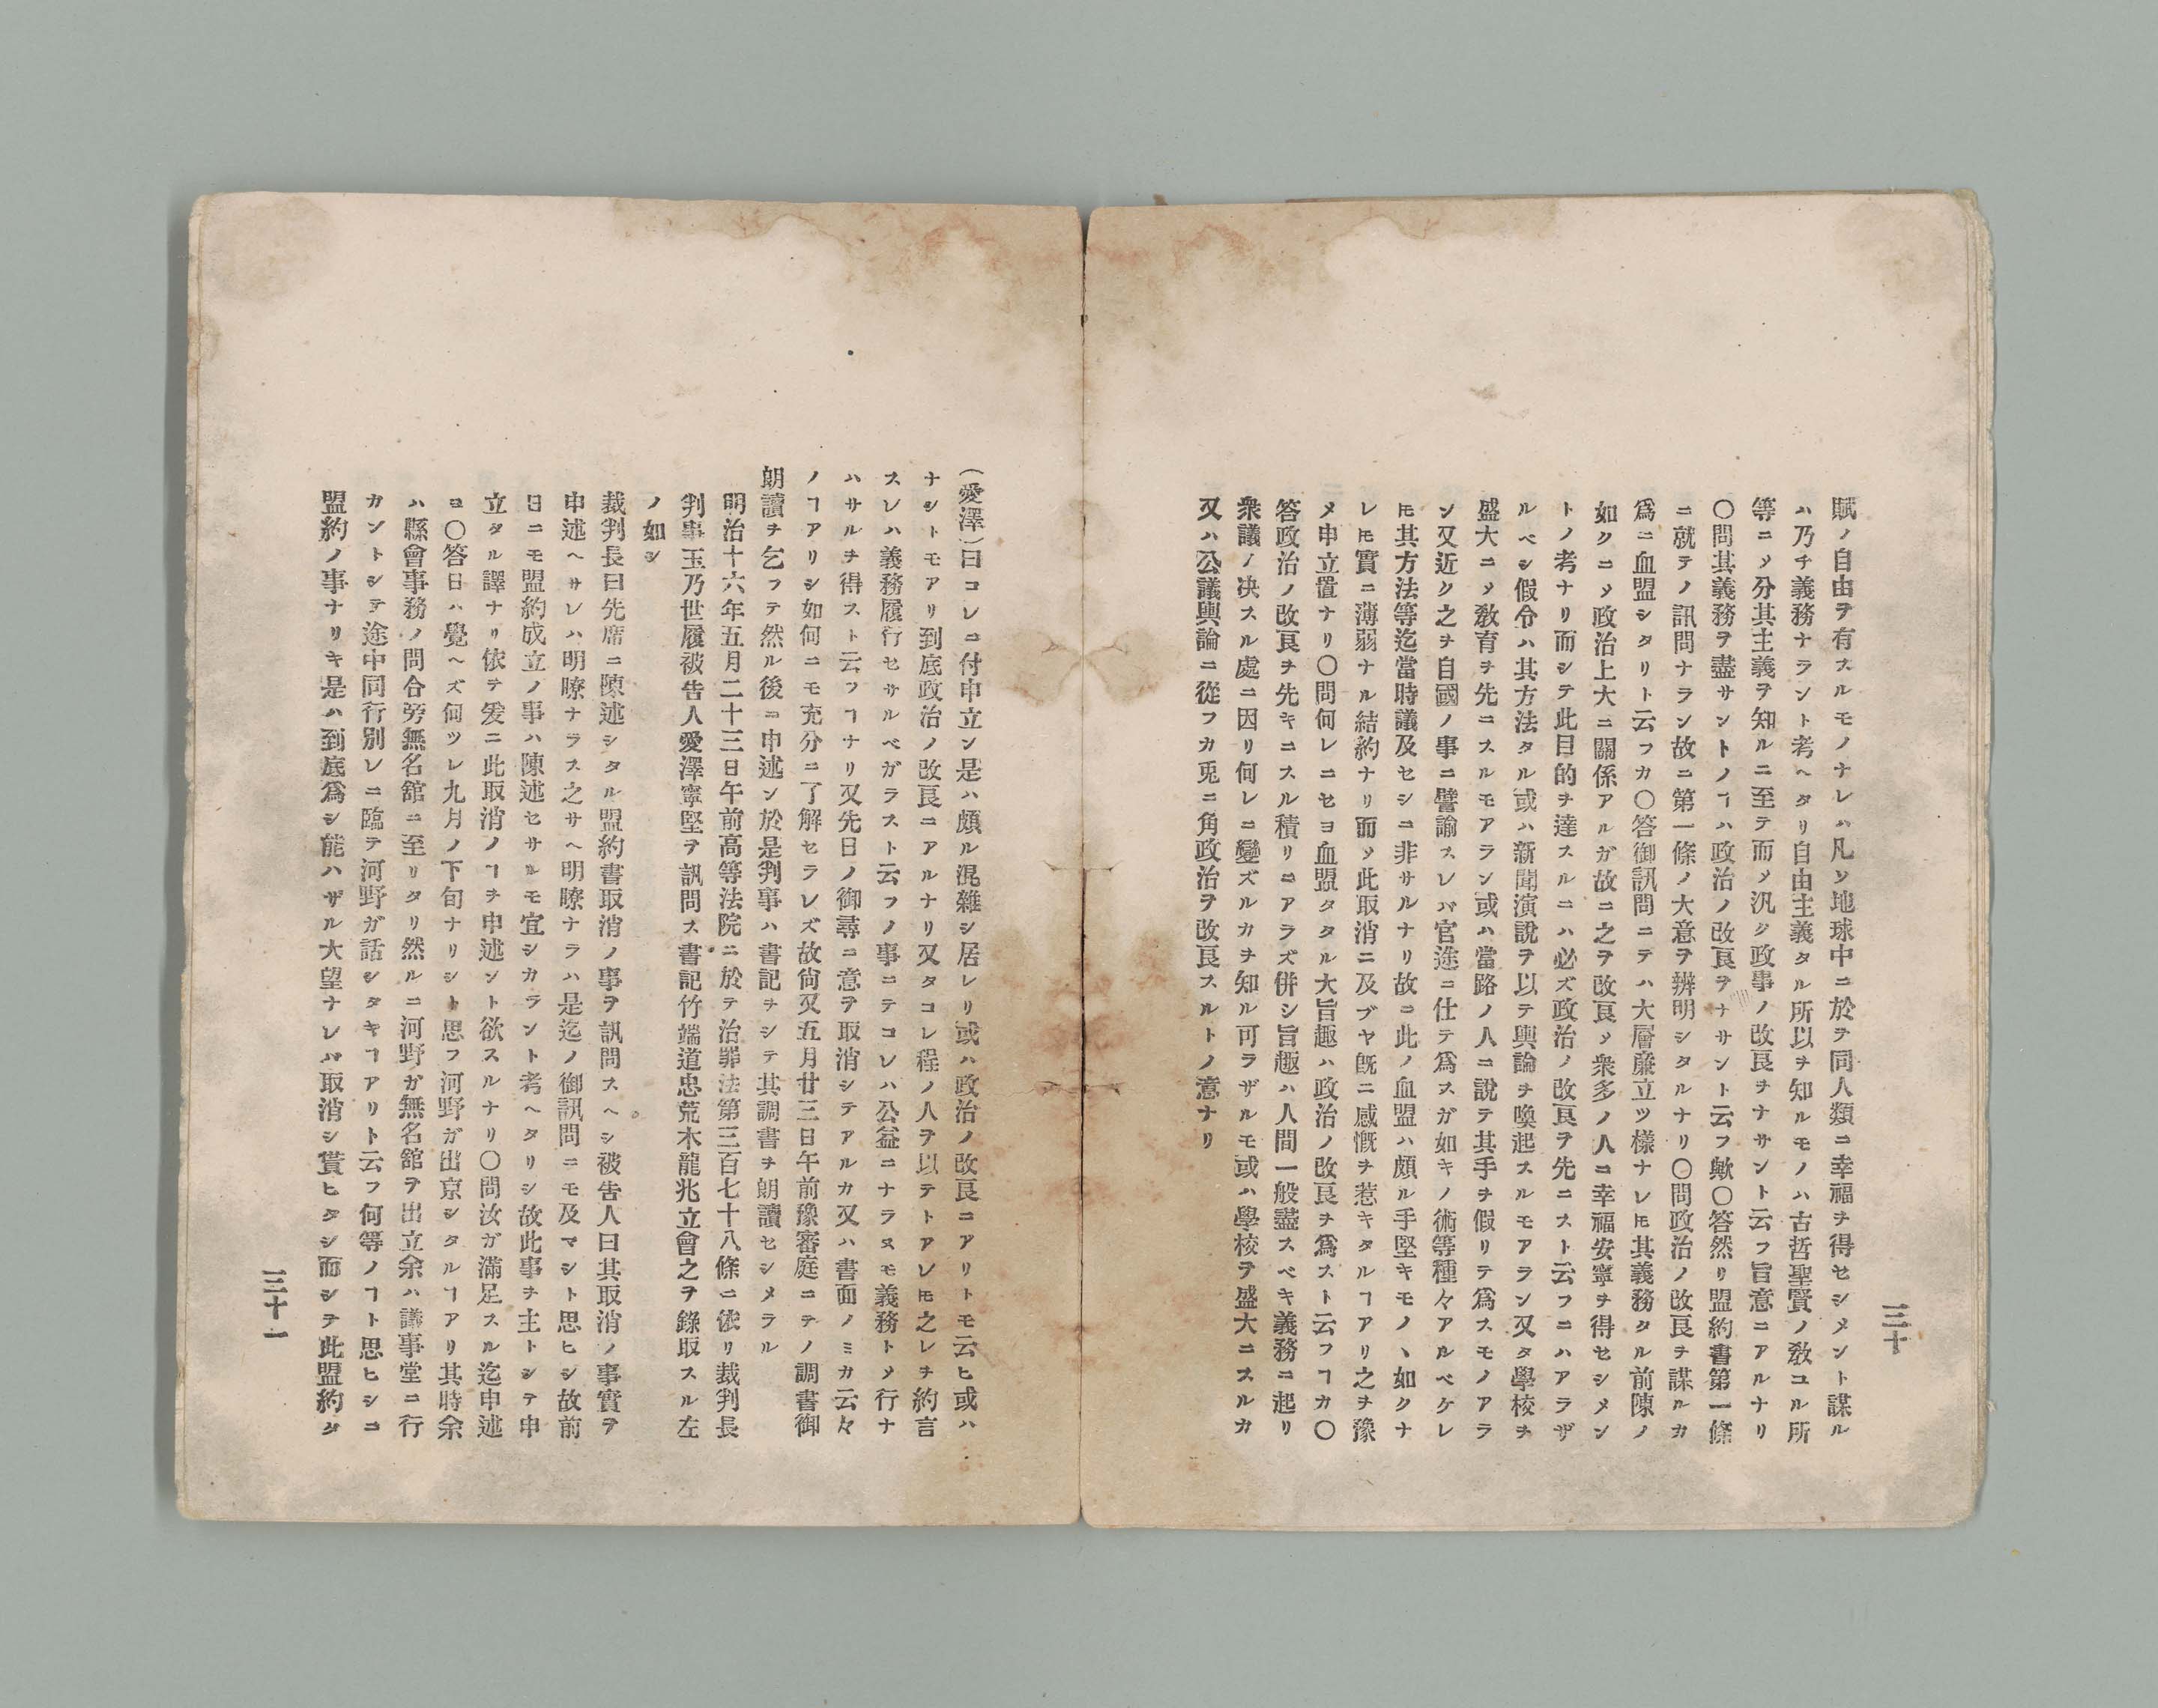 賦ノ自由ヲ有スルモノナレハ凡ソ地球中ニ於テ同人類ニ幸福ヲ得セシメント謀ル
ハ乃チ義務ナラント考ヘタリ自由主義タル所以ヲ知ルモノハ古哲聖賢ノ敎ユル所
等ニノ分其主義ヲ知ルニ至テ而〆汎ク政事ノ改良ヲナサント云フ旨意ニアルナリ
〇問其義務ヲ盡サントノヿハ政治ノ改良ヲナサント云フ歟〇答然リ盟約書第一條
ニ就テノ訊問ナラン故ニ第一條ノ大意ヲ辨明シタルナリ〇問政治ノ改良ヲ謀ルカ
爲ニ血盟シタリト云フカ〇答御訊問ニテハ大層廉立ツ樣ナレ𪜈其義務タル前陳ノ
如クニ〆政治上大ニ關係アルガ故ニ之ヲ改良〆衆多ノ人ニ幸福安寧ヲ得セシメン
トノ考ナリ而シテ此目的ヲ達スルニハ必ズ政治ノ改良ヲ先ニスト云フニハアラザ
ルベシ假令ハ其方法タル或ハ新聞演說ヲ以テ輿論ヲ喚起スルモアラン又タ學校ヲ
盛大ニ〆敎育ヲ先ニスルモアラン或ハ當路ノ人ニ說テ其手ヲ假リテ爲スモノアラ
ン又近ク之ヲ自國ノ事ニ譬諭スレバ官途ニ仕テ爲スガ如キノ術等種々アルベケレ
𪜈其方法等迄當時議及セシニ非サルナリ故ニ此ノ血盟ハ頗ル手堅キモノヽ如クナ
レ𪜈實ニ薄弱ナル結約ナリ而〆此取消ニ及ブヤ旣ニ感慨ヲ惹キタルヿアリ之ヲ豫
メ申立置ナリ〇問何レニセヨ血盟タル大旨趣ハ政治ノ改良ヲ爲スト云フヿカ〇
答政治ノ改良ヲ先キニスル積リニアラズ併シ旨趣ハ人間一般盡スベキ義務ニ起リ
衆議ノ决スル處ニ因リ何レニ變ズルカヲ知ル可ラザルモ或ハ學校ヲ盛大ニスルカ
又ハ公議輿論ニ從フカ兎ニ角政治ヲ改良スルトノ意ナリ
三十
(愛澤)曰コレニ付申立ン是ハ頗ル混雜シ居レリ或ハ政治ノ改良ニアリトモ云ヒ或ハ
ナシトモアリ到底政治ノ改良ニアルナリ又タコレ程ノ人ヲ以テトアレ𪜈之レヲ約言
スレハ義務履行セサルベガラスト云フノ事ニテコレハ公益ニナラヌモ義務ト〆行ナ
ハサルヲ得スト云フヿナリ又先日ノ御尋ニ意ヲ取消シテアルカ又ハ書面ノミカ云々
ノヿアリシ如何ニモ充分ニ了解セラレズ故尙又五月廿三日午前豫審庭ニテノ調書御
朗讀ヲ乞フテ然ル後ニ申述ン於是判事ハ書記ヲシテ其調書ヲ朗讀セシメラル
明治十六年五月二十三日午前高等法院ニ於テ治罪法第三百七十八條ニ依リ裁判長
判事玉乃世履被告人愛澤寧堅ヲ訊問ス書記竹端道忠荒木龍兆立會之ヲ錄取スル左
ノ如シ
裁判長曰先席ニ陳述シタル盟約書取消ノ事ヲ訊問スヘシ被告人曰其取消ノ事實ヲ
申述ヘサレハ明瞭ナラス之サヘ明瞭ナラハ是迄ノ御訊問ニモ及マシト思ヒシ故前
日ニモ盟約成立ノ事ハ陳述セサルモ宜シカラント考ヘタリシ故此事ヲ主トシテ申
立タル譯ナリ依テ爰ニ此取消ノヿヲ申述ント欲スルナリ〇問汝ガ滿足スル迄申述
ヨ〇答日ハ覺ヘズ何ツレ九月ノ下旬ナリシト思フ河野ガ出京シタルヿアリ其時余
ハ縣會事務ノ問合旁無名館ニ至リタリ然ルニ河野ガ無名舘ヲ出立余ハ議事堂ニ行
カントシテ途中同行別レニ臨テ河野ガ話シタキヿアリト云フ何等ノヿト思ヒシニ
盟約ノ事ナリキ是ハ到底爲シ能ハザル大望ナレバ取消シ貰ヒタシ而シテ此盟約タ
三十一